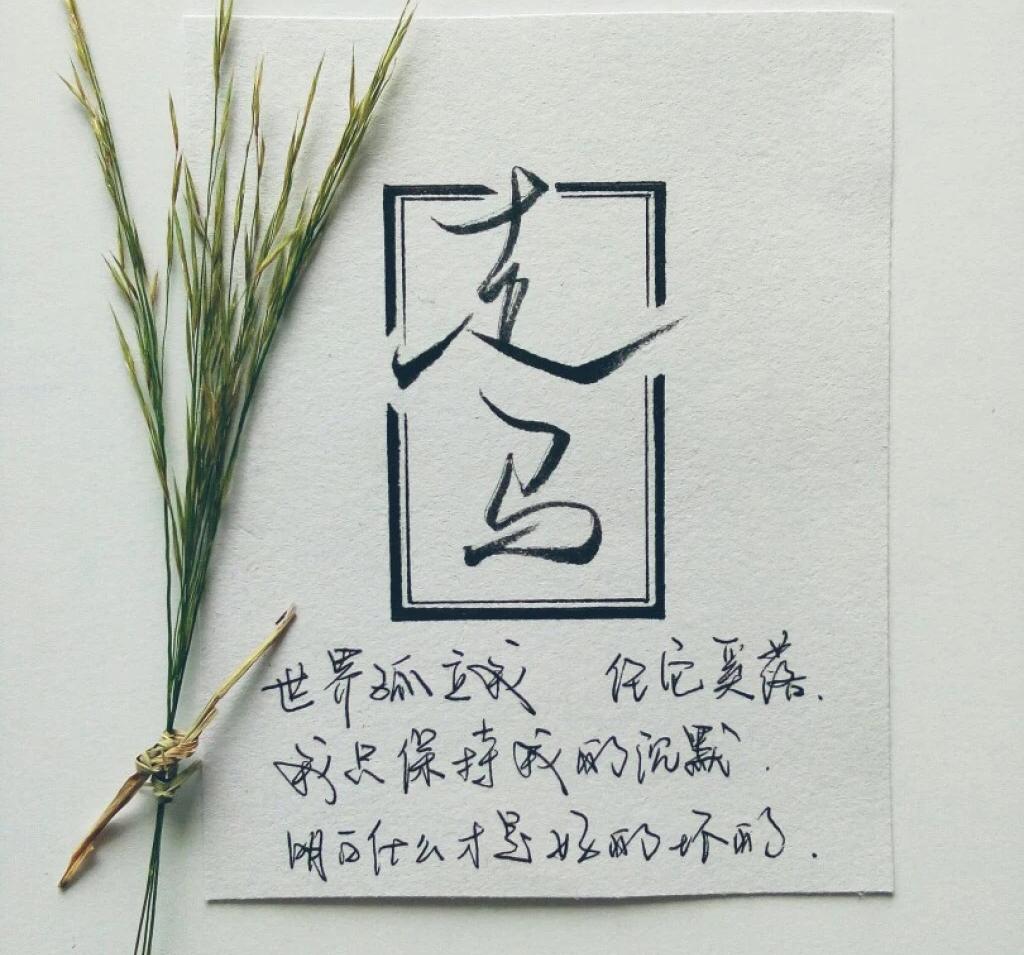 走
马
世界孤立我 任它奚落.
我只保持我的沉默.
明白什么才是好的坏的.